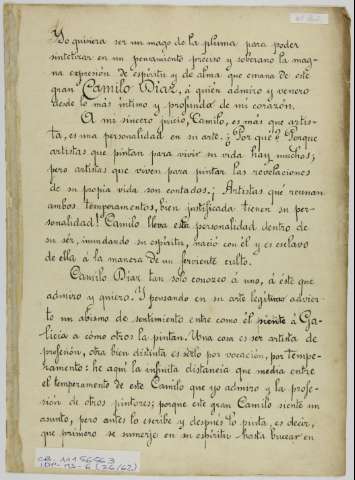 Yo quisiera ser un mago de la pluma para poder
sintetizar en un pensamiento proceso y soberano la mag-
na expresión de espíritu y de alma que emana de este
gran Camilo Díaz, á quién admiro y venero
desde lo más íntimo y profundo de mi corazón.
A mi sincero juicio, Camilo, es más que artis-
ta, es una personalidad en su arte. ¿Por qué? Porque
artistas que pintan para vivir su vida hay muchos;
pero artistas que viven para pintar las revelaciones
de su propia vida son contados. ¡Artistas que reunan
ambos temperamentos, bien justificada tienen su per-
sonalidad! Camilo lleva esta personalidad dentro de
su sér, inundando su espíritu, nació con él y es esclavo
de ella á la manera de un ferviente culto.
Camilo Díaz tan solo conozco á uno, á éste que
admiro y quiero. Y pensando en su arte legítimo advier-
to un abismo de sentimiento entre como él siente á Ga-
licia a cómo otros la pintan. Una cosa es ser artista de
profesión, otra bien distinta es serlo por vocación, por tempe-
ramento: he aquí la infinita distancia que media entre
el temperamento de este Camilo que yo admiro y la profe-
sión de otros pintores; porque este gran Camilo siente un
asunto, pero antes lo escribe y después lo pinta, es decir,
que primero se sumerje en su espíritu hasta bucear en
CB. 1156563